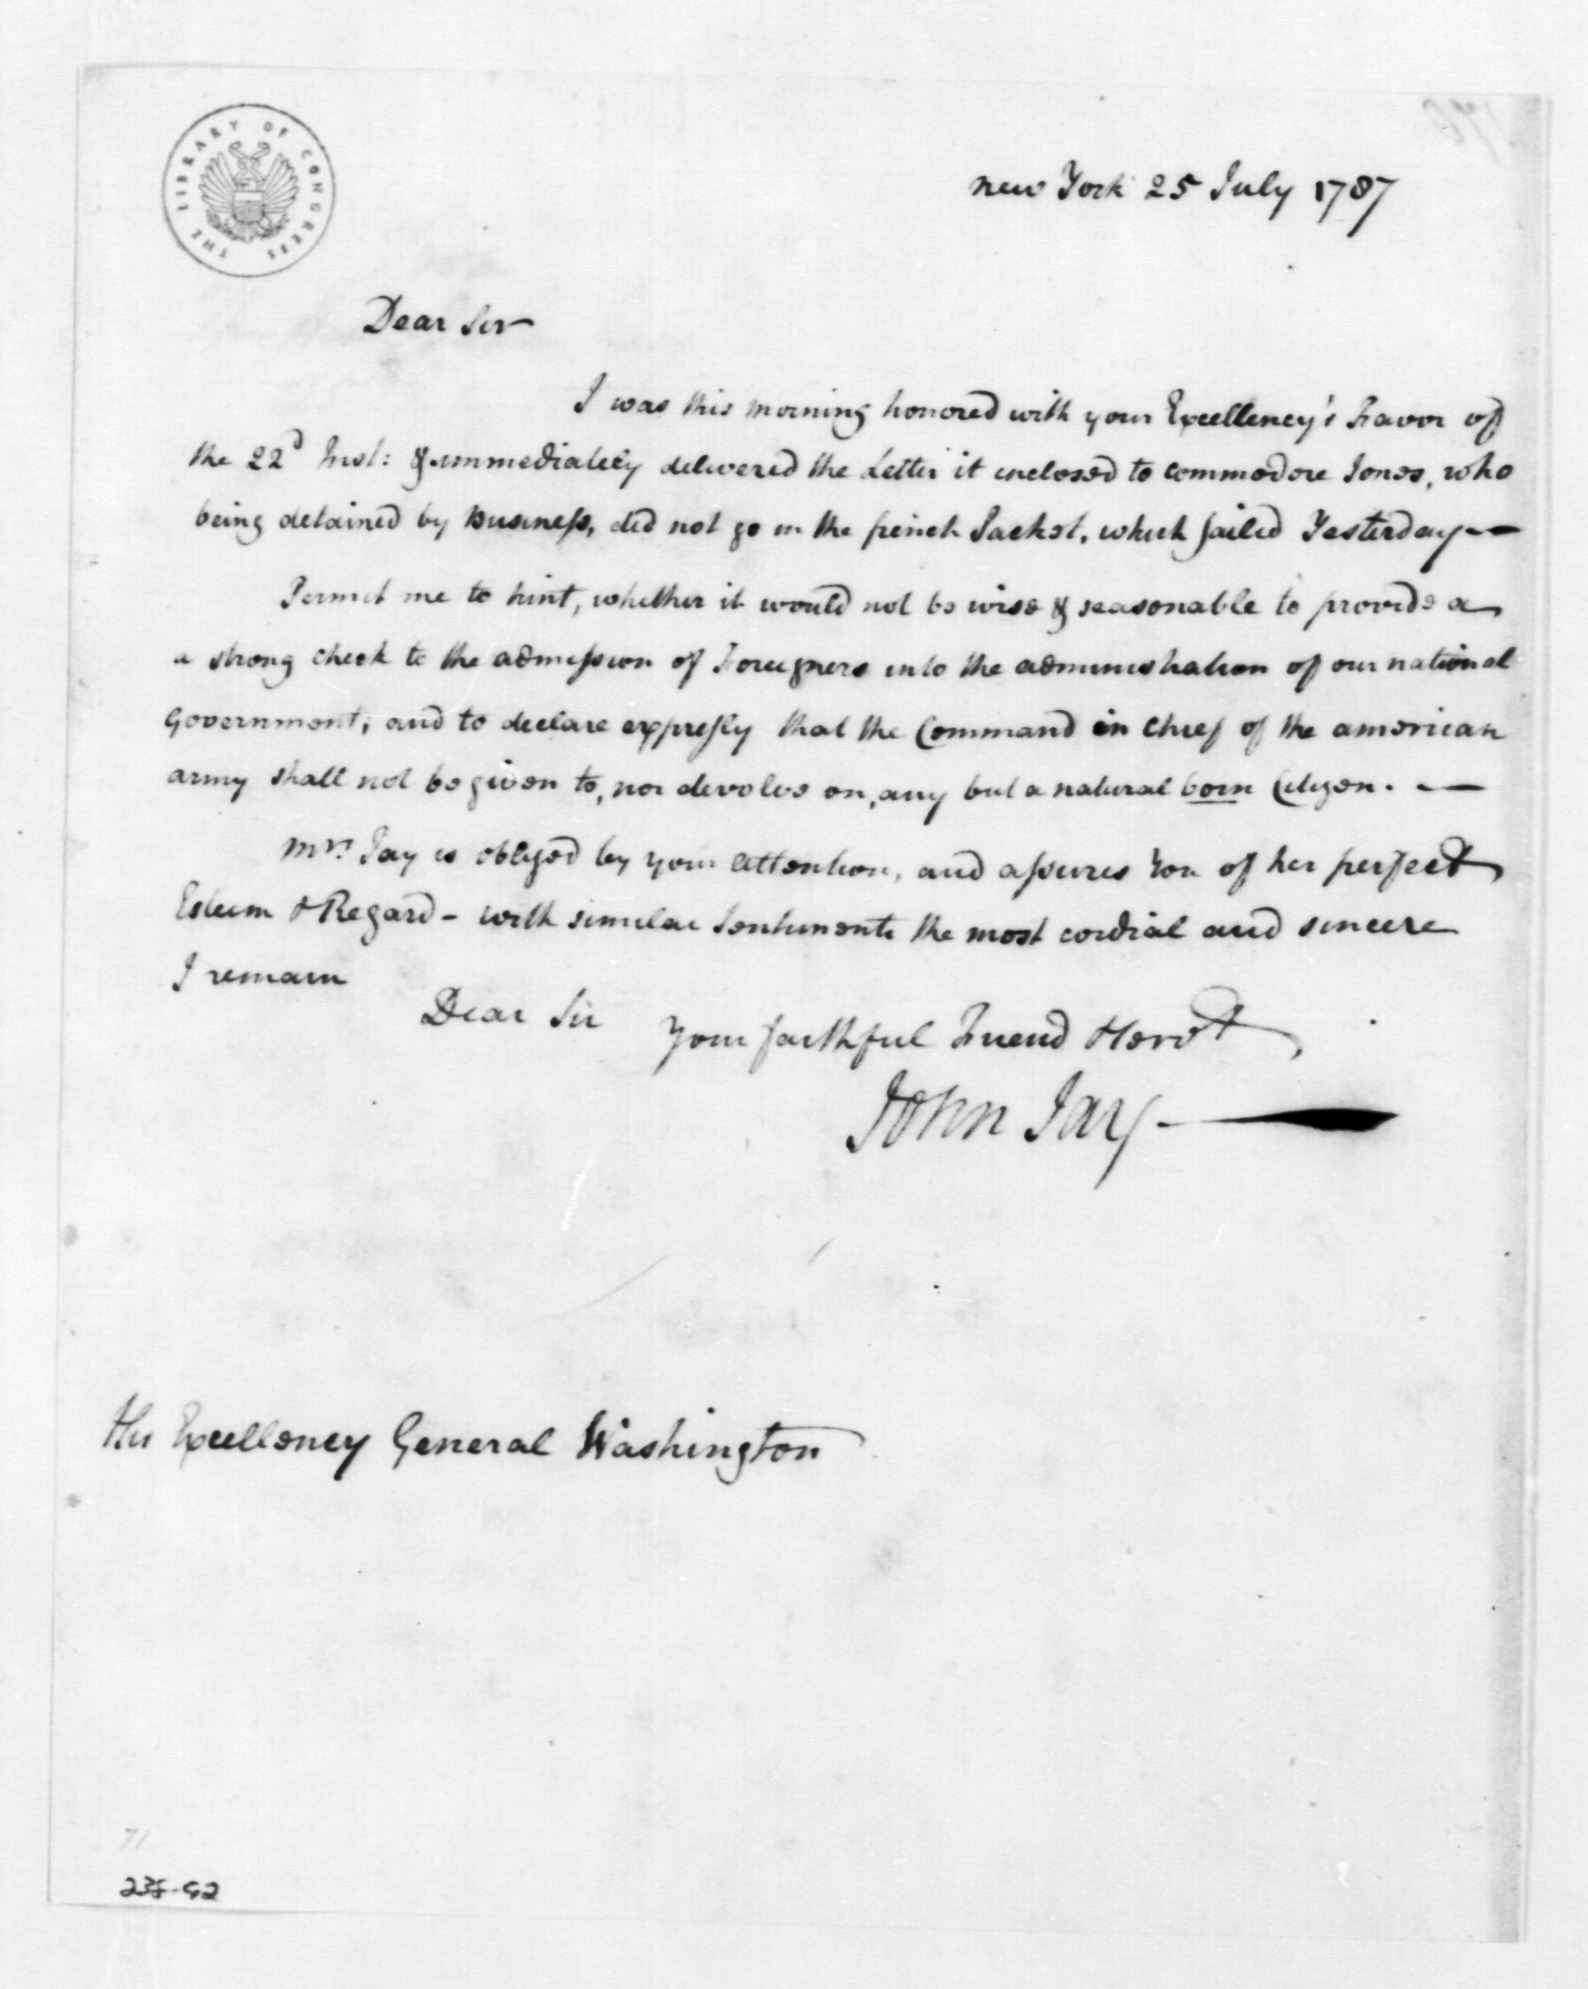 THE LIBRARY OF CONGRESS
new York 25 July 1787
Dear Sir
I was this morning honored with your Excellency's Favor of
the 22d Inst: & immediately delivered the Letter it enclosed to commodore Jones, who
being detained by Business, did not go in the french Packet, which sailed Yesterday—
Permit me to hint, whether it would not be wise & seasonable to provide a
a strong check to the admission of Foreigners into the administration of our national
Government; and to declare expressly that the Command in chief of the american
army shall not be given to, nor devolve on, any but a natural born Citizen. —
Mrs. Jay is obliged by your attention, and assures You of her perfect
Esteem & Regard - with similar Sentiments the most cordial and sincere
I remain
Dear Sir your faithful Friend & Servt
John Jay —
His Excellency General Washington
71